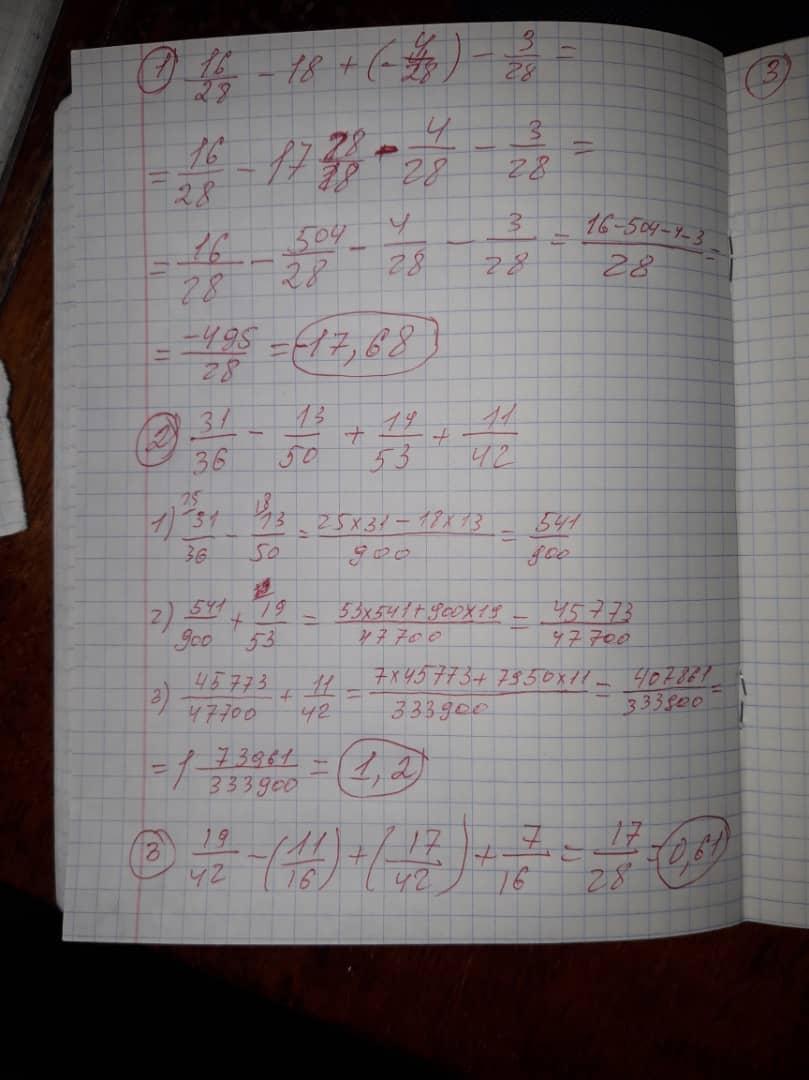 1) 16/28 - 18 + (-4/28) - 3/28 =
= 16/28 - 17 28/28 - 4/28 - 3/28 =
= 16/28 - 504/28 - 4/28 - 3/28 = 16-504-4-3/28 =
= -495/28 = -17,68
2) 31/36 - 13/50 + 19/53 + 11/42
25 18
1) 31/36 - 13/50 = 25×31-18×13/900 = 541/900
2) 541/900 + 19/53 = 53×541+900×19/47700 = 45773/47700
3) 45773/47700 + 11/42 = 7×45773+7950×11/333900 = 407861/333900 =
= 1 73961/333900 = 1,2
3) 19/42 - (11/16) + (17/42) + 7/16 = 17/28 = 0,61
3)